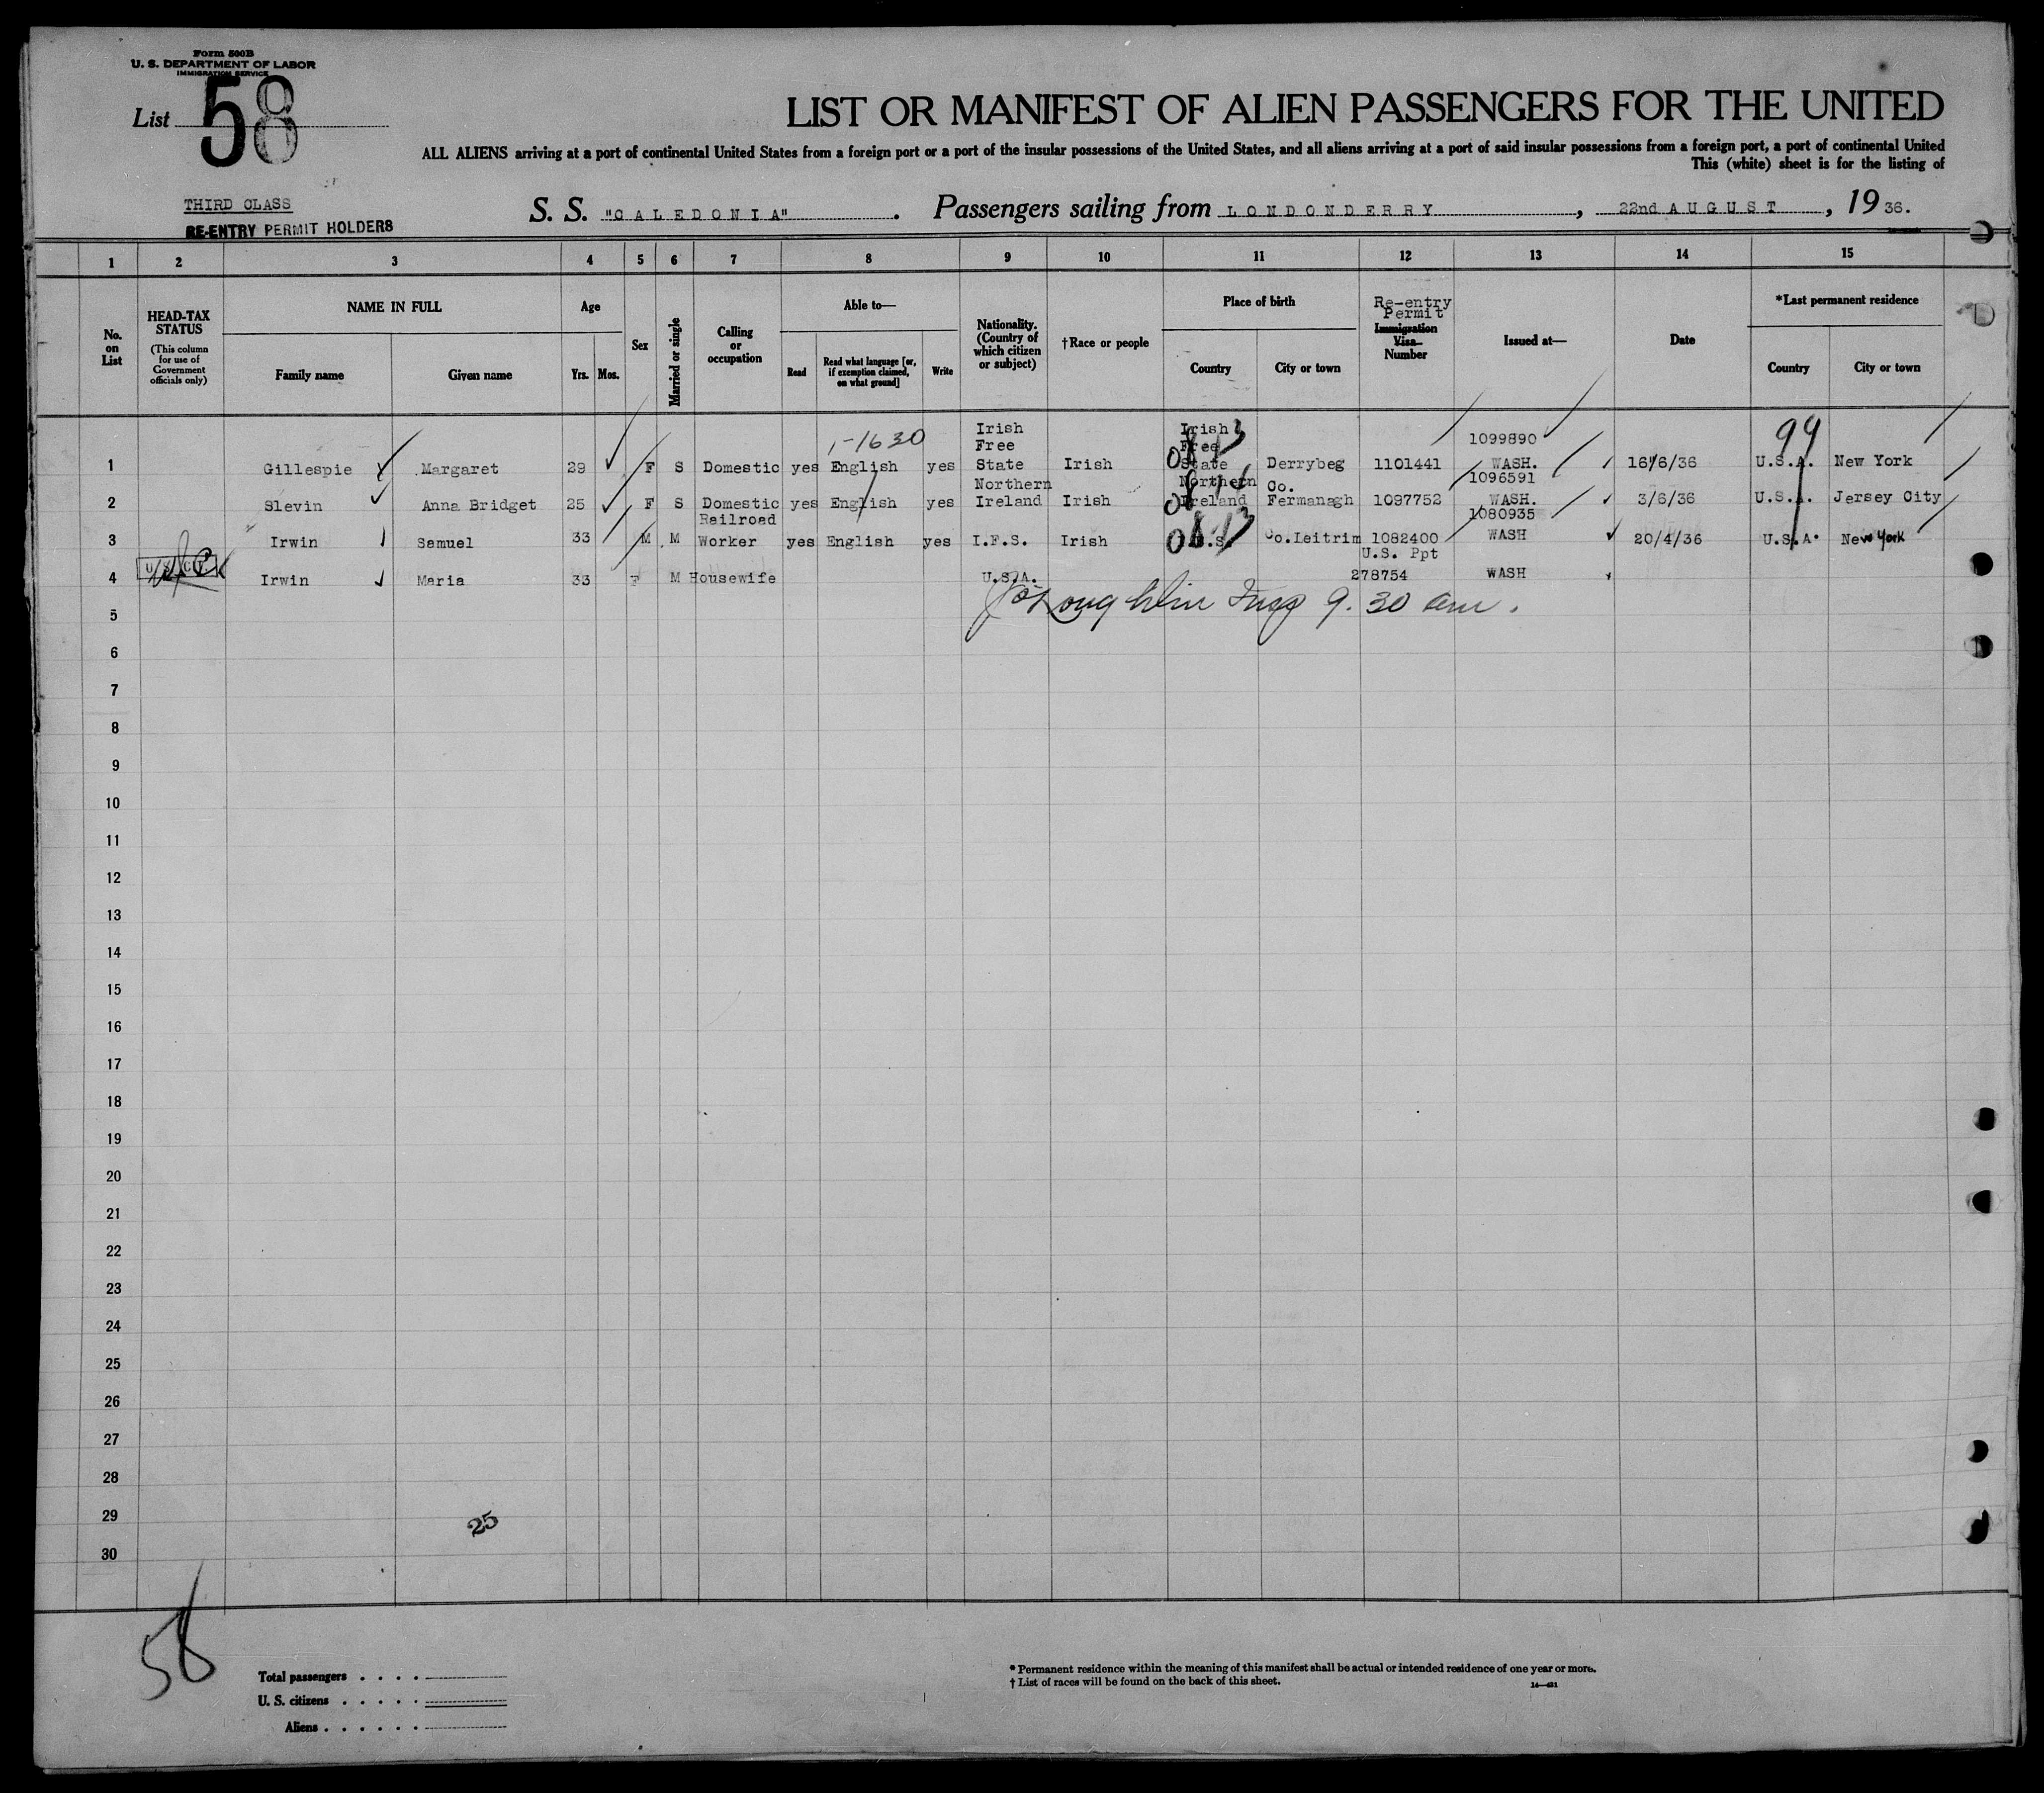 Form 500B
U. S. DEPARTMENT OF LABOR
IMMIGRATION SERVICE
List 58
LIST OR MANIFEST OF ALIEN PASSENGERS FOR THE UNITED
ALL ALIENS arriving at a port of continental United States from a foreign port or a port of the insular possessions of the United States, and all aliens arriving at a port of said insular possessions from a foreign port, a port of continental United
This (white) sheet is for the listing of
THIRD CLASS
RE-ENTRY PERMIT HOLDERS
S. S. "CALEDONIA". Passengers sailing from LONDONDERRY, 22nd AUGUST, 1936.
1 2 3 4 5 6 7 8 9 10 11 12 13 14 15
No. on List
HEAD-TAX STATUS (This column for use of Government officials only)
NAME IN FULL
Family name Given name
Age
Yrs. Mos.
Sex
Married or single
Calling or occupation
Able to—
Read Read what language [or, if exemption claimed, on what ground] Write
Nationality. (Country of which citizen or subject)
†Race or people
Place of birth
Country City or town
Re-entry Permit
Immigration Visa Number
Issued at—
Date
*Last permanent residence
Country City or town
1-1630
99
1 Gillespie Margaret 29 F S Domestic yes English yes Irish Free State Irish Irish Free State Derrybeg 1101441 1099890 WASH. 16/6/36 U.S.A. New York
2 Slevin Anna Bridget 25 F S Domestic yes English yes Northern Ireland Irish Northern Ireland Co. Fermanagh 1097752 1096591 WASH. 3/6/36 U.S.A. Jersey City
3 Irwin Samuel 33 M M Railroad Worker yes English yes I.F.S. Irish Co.Leitrim 1082400 1080935 WASH 20/4/36 U.S.A. New York
4 Irwin Maria 33 F M Housewife U.S.A. U.S. Ppt 278754 WASH
9.30 am.
5
6
7
8
9
10
11
12
13
14
15
16
17
18
19
20
21
22
23
24
25
26
27
28
29
25
30
58
Total passengers
U. S. citizens
Aliens
* Permanent residence within the meaning of this manifest shall be actual or intended residence of one year or more.
† List of races will be found on the back of this sheet.
14—421